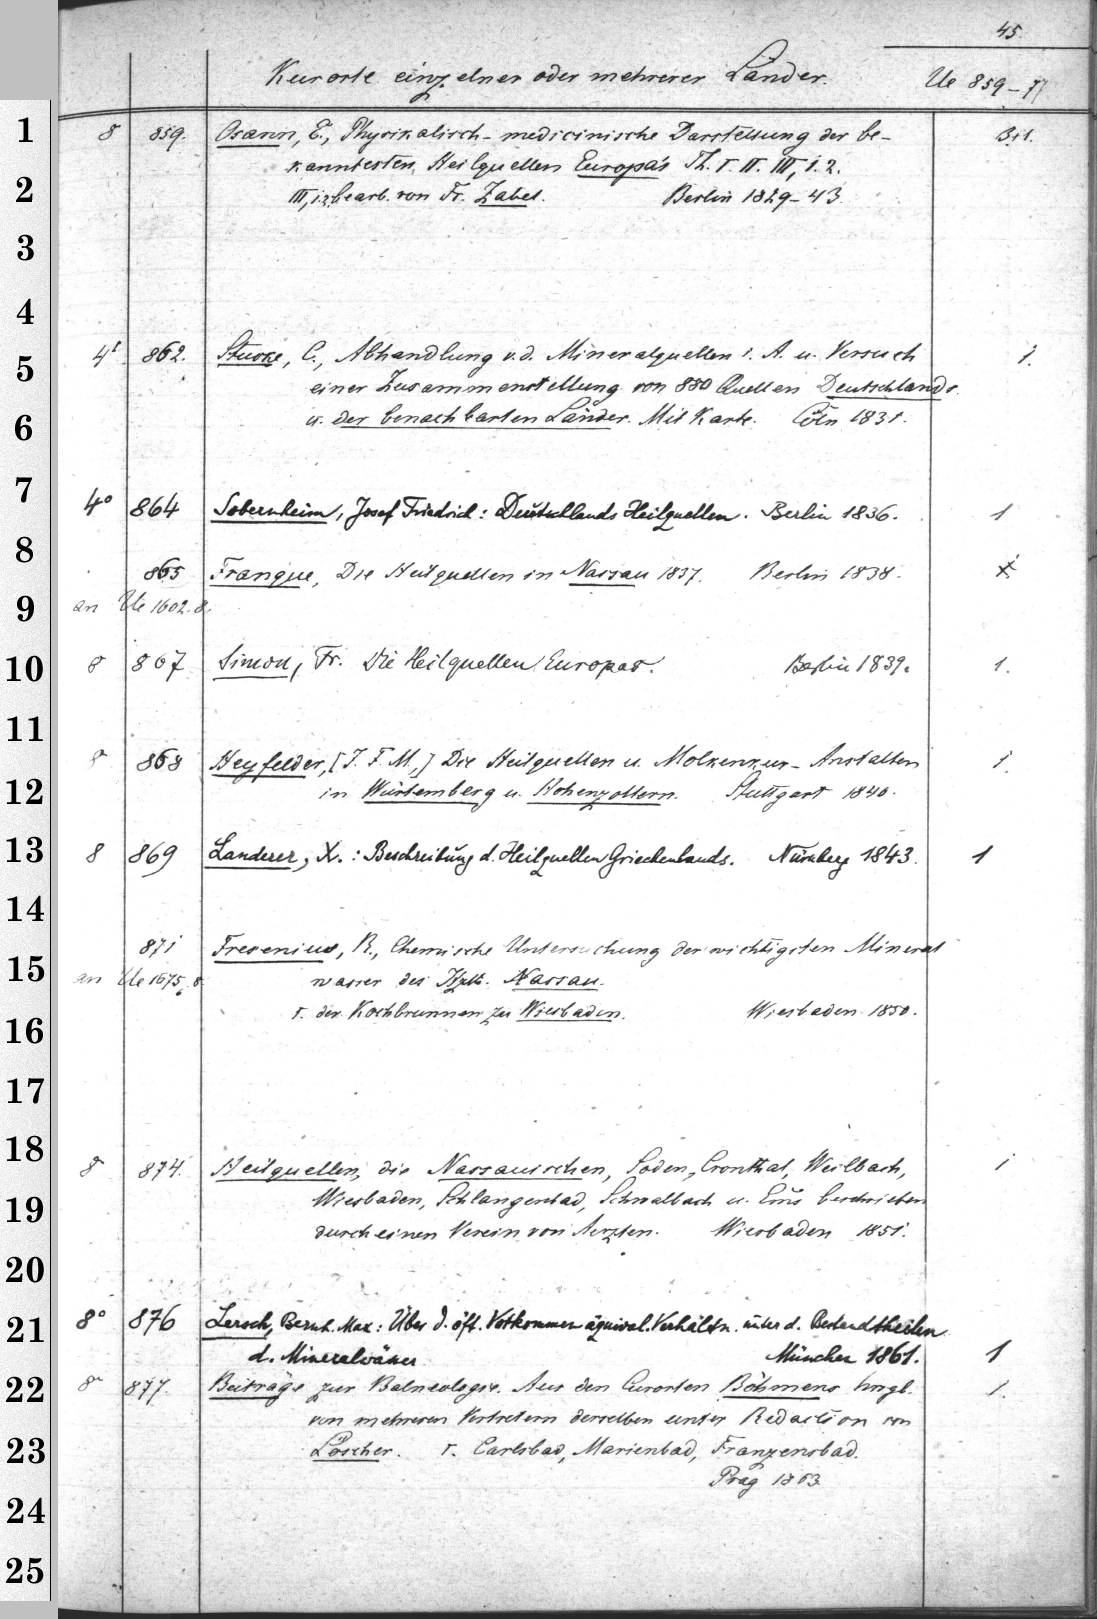 45.
Kurorte einzelner oder mehrerer Länder.
Ue 859-77
1
8 859. Osann, E., Physikalisch-medicinische Darstellung der be-
kanntesten Heilquellen Europa's Th. I. II. III, 1. 2.
2
III, 1.2. bearb. von Fr. Zabel. Berlin 1829-43.
3
4
862. Stucke, C., Abhandlung v. d. Mineralquellen i. A. u. Versuch 1.
5
einer Zusammenstellung von 880 Quellen Deutschlands
u. der benachbarten Länder. Mit Karte. Cöln 1831.
6
7
4° 864 Sobernheim, Josef Friedrich: Deutschlands Heilquellen. Berlin 1836. 1
8
865 Franque, Die Heilquellen in Nassau 1837. Berlin 1838.
9
an Ue 1602. 8.
10
8 867 Simon, Fr. Die Heilquellen Europas. Berlin 1839. 1.
11
8 868 Heyfelder, [J. F. M.,] Die Heilquellen u. Molkenkur-Anstalten 1.
12
in Würtemberg u. Hohenzollern. Stuttgart 1840.
13
8 869 Landerer, X.: Beschreibung d. Heilquellen Griechenlands. Nürnberg 1843. 1
14
871 Fresenius, R., Chemische Untersuchung der wichtigsten Mineral
15
an Ue 1675, 8. wasser des Hzgth. Nassau.
I. der Kochbrunnen zu Wiesbaden. Wiesbaden 1850.
16
17
18
8 874. Heilquellen, die Nassauischen, Soden, Cronthal, Weilbach, 1
Wiesbaden, Schlangenbad, Schwalbach u. Ems beschrieben
19
durch einen Verein von Aerzten. Wiesbaden 1851.
20
21
8° 876 Lersch, Bernh. Max: Über d. öft. Vorkommen äquival. Verhältn. unter d. Bestandtheilen
d. Mineralwässer München 1861. 1
22
8° 877. Beiträge zur Balneologie. Aus den Curorten Böhmens hrsgb. 1.
von mehreren Vertretern derselben unter Redaction von
23
Löschner. I. Carlsbad, Marienbad, Franzensbad.
Prag 1863
24
25